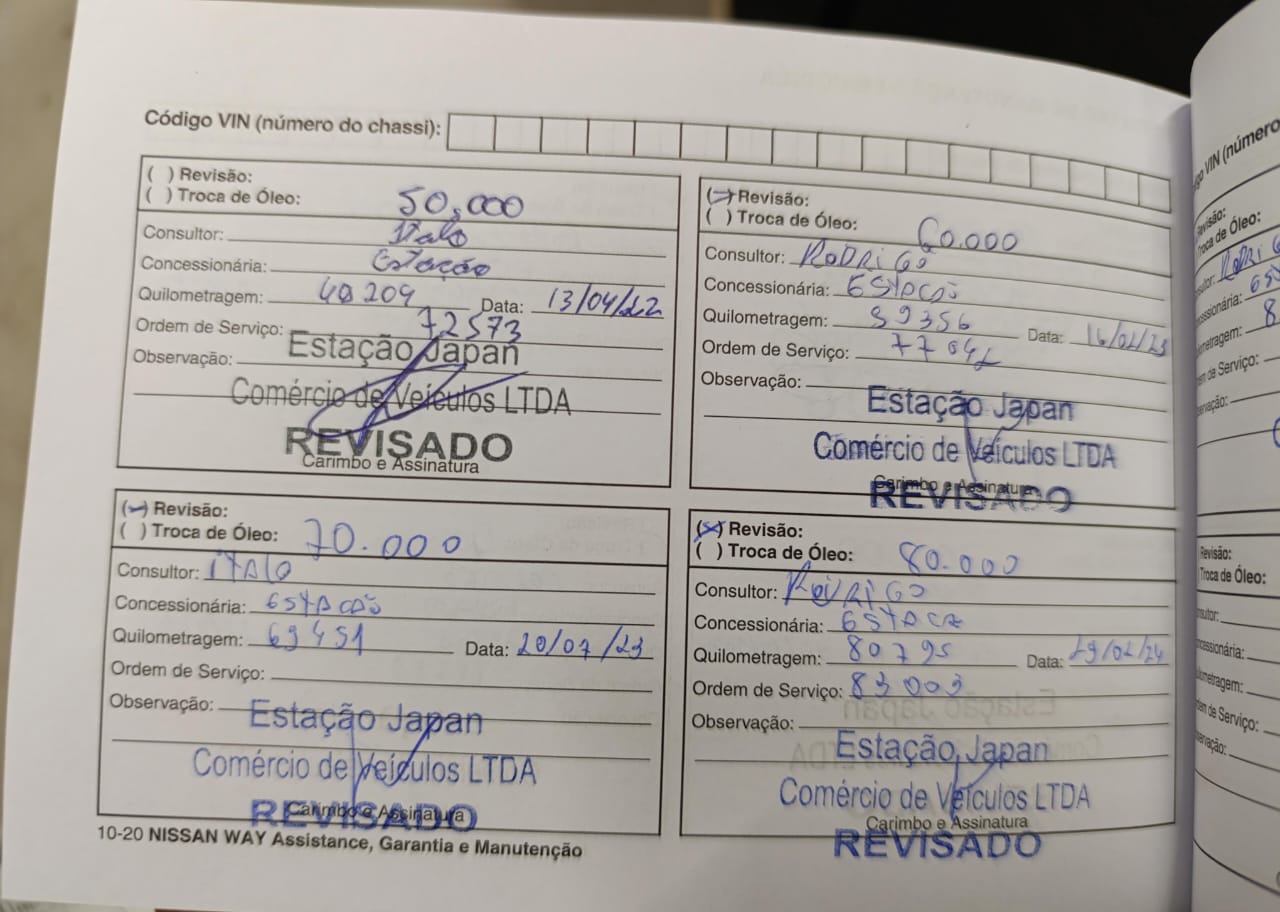 Código VIN (número do chassi):
( ) Revisão:
( ) Troca de Óleo: 50.000
Consultor: Italo
Concessionária: Estação
Quilometragem: 48209 Data: 13/04/22
Ordem de Serviço: 72573
Observação:
Estação Japan
Comércio de Veículos LTDA
REVISADO
Carimbo e Assinatura
Revisão:
( ) Troca de Óleo: 60.000
Consultor: RODRIGO
Concessionária: ESTACÃO
Quilometragem: 59356 Data:
Ordem de Serviço:
Observação:
Estação Japan
Comércio de Veículos LTDA
Carimbo e Assinatura
REVISADO
Revisão:
( ) Troca de Óleo: 70.000
Consultor: ITALO
Concessionária: ESTACÃO
Quilometragem: 69451 Data: 20/07/23
Ordem de Serviço:
Observação:
Estação Japan
Comércio de Veículos LTDA
Carimbo e Assinatura
REVISADO
(x) Revisão:
( ) Troca de Óleo: 80.000
Consultor: RODRIGO
Concessionária:
Quilometragem: 80795 Data:
Ordem de Serviço: 83003
Observação:
Estação Japan
Comércio de Veículos LTDA
Carimbo e Assinatura
REVISADO
10-20 NISSAN WAY Assistance, Garantia e Manutenção
Revisão:
Troca de Óleo:
Revisão:
Troca de Óleo: